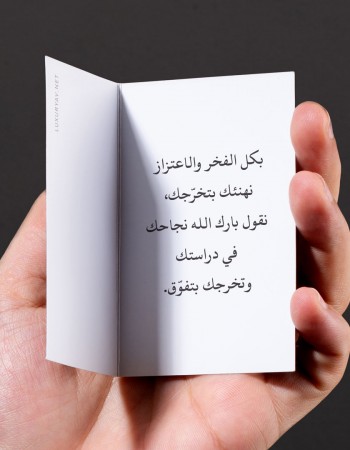 بكل الفخر والاعتزاز
نهنئك بتخرّجك،
نقول بارك الله نجاحك
في دراستك
وتخرجك بتفوّق.
LUXURYAY.NET